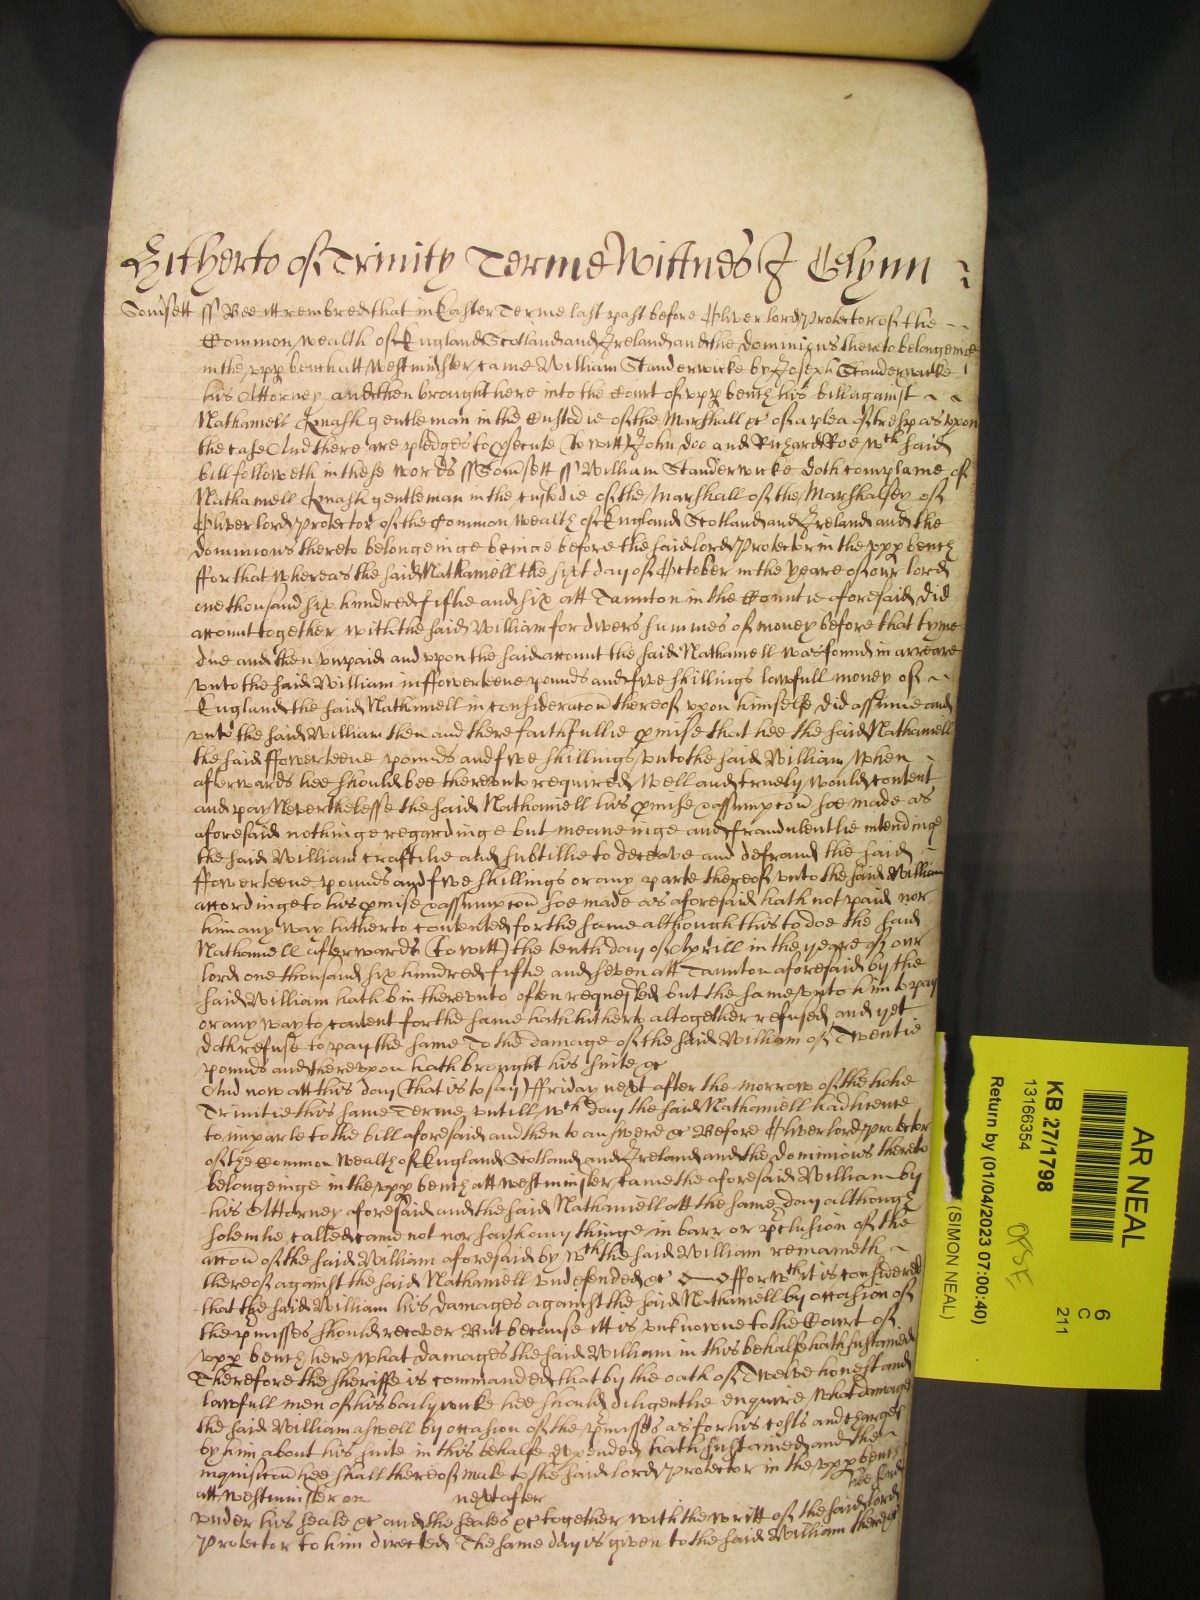 Hitherto of Trinity Terme Wittnes J Glynn
Somsett ss Bee itt remembred that in Easter Terme last past before Oliver lord Protector of the
Common wealth of England Scotland and Ireland and the dominions thereto belongeinge
in the upp bench att Westminster came William Standerwicke by Joseph Standerwicke
his Attorney and then brought here into the Court of upp bench his bill against
Nathaniell Quash gentleman in the Custodie of the Marshall &c of a plea of trespas upon
the case And there are pledges to psecute (to witt) John Doo and Richard Roe wch said
bill followeth in these words ss Somsett ss William Standerwicke doth complaine of
Nathaniell Quash gentleman in the custodie of the Marshall of the Marshalsey of
Oliver lord Protector of the Common wealth of England Scotland and Ireland and the
dominions thereto belongeinge beinge before the said lord Protector in the upp bench
ffor that whereas the said Nathaniell the sixt day of October in the yeare of our lord
one thousand six hundred fiftie and six att Taunton in the Countie aforesaid did
account together with the said William for divers summes of money before that tyme
due and then unpaid and upon the said account the said Nathaniell was found in arreare
unto the said William in ffowerteene pounds and five shillings lawfull money of
England the said Nathaniell in consideracon thereof upon himselfe did assume and
unto the said William then and there faithfullie pmise that hee the said Nathaniell
the said ffowerteene pounds and five shillings unto the said William when
afterwards hee should bee thereunto required well and truely would content
and pay Neverthelesse the said Nathaniell his pmise & assumpcon soe made as
aforesaid nothinge regardinge but meaneinge and fraudulentlie intendinge
the said William craftilie and subtillie to deceave and defraud the said
ffowerteene pounds and five shillings or any parte thereof unto the said William
accordinge to his pmise & assumpcon soe made as aforesaid hath not paid nor
him any way hitherto contented for the same although this to doe the said
Nathaniell afterwards (to witt) the tenth day of Aprill in the yeare of our
lord one thousand six hundred fiftie and seven att Taunton aforesaid by the
said William hath bin thereunto often requested but the same unto him to pay
or any way to content for the same hath hitherto altogether refused and yet
doth refuse to pay the same To the damage of the said William of Twentie
pounds and thereupon hath brought his suite &c
And now att this day (that is to say) ffriday next after the morrow of the holie
Trinitie this same Terme untill wch day the said Nathaniell had licence
to imparle to the bill aforesaid and then to answere &c Before Oliver lord Protector
of the Common wealth of England Scotland and Ireland and the dominions thereto
belongeinge in the upp bench att Westminster came the aforesaid William by
his Attorney aforesaid and the said Nathaniell att the same day although
solemlie called came not nor saith any thinge in barr or pclusion of the
accon of the said William aforesaid by wch the said William remaineth
thereof against the said Nathaniell undefended &c Fforwch it is considered
that the said William his damages against the said Nathaniell by occasion of
the pmisses should recover But because itt is unknowne to the Court of
upp bench here what damages the said William in this behalfe hath sustained
Therefore the sheriffe is commanded that by the oath of Twelve honest and
lawfull men of his bailywicke hee should diligentlie enquire what damages
the said William aswell by occasion of the pmisses as for his costs and charges
by him about his suite in this behalfe expended hath sustained and the
inquisicon hee shall thereof make to the said lord Protector in the upp bench
att Westminster on next after hee send
under his seale &c and the seales &c together with the writt of the said lord
Protector to him directed The same day is given to the said William there &c
AR NEAL
6
C
211
KB 27/1798
13166354
Return by (01/04/2023 07:00:40)
(SIMON NEAL)